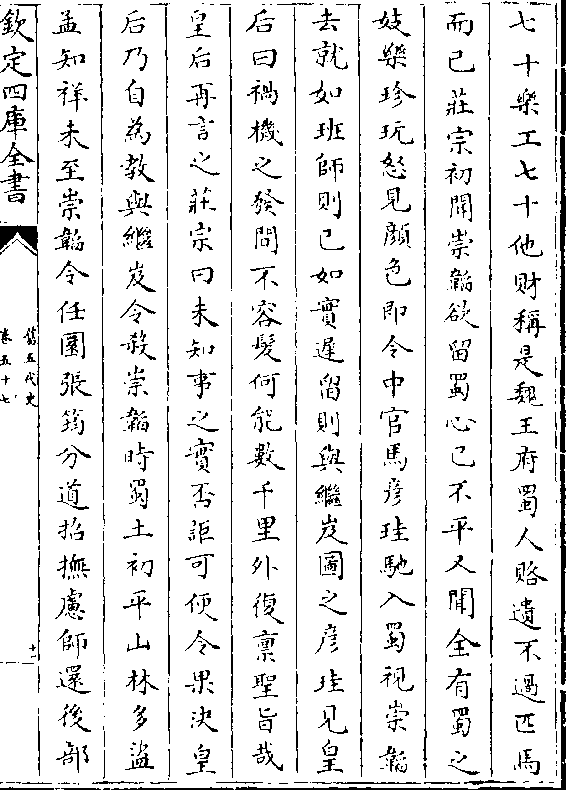 七十樂工七十他財稱是魏王府蜀人賂遺不過匹馬
而已莊宗初聞崇韜欲留蜀心已不平又聞全有蜀之
妓樂珍玩怒見顔色即令中官馬彦珪馳入蜀視崇韜
去就如班師則已如實遲留則與繼岌圖之彦珪見皇
后曰禍機之發間不容髪何能數千里外復禀聖旨哉
皇后再言之莊宗曰未知事之實否詎可便令果決皇
后乃自為教與繼岌令殺崇韜時蜀土初平山林多盜
孟知祥未至崇韜令任圜張筠分道招撫慮師還後部
欽定四庫全書
舊五代史
卷五十七
十一